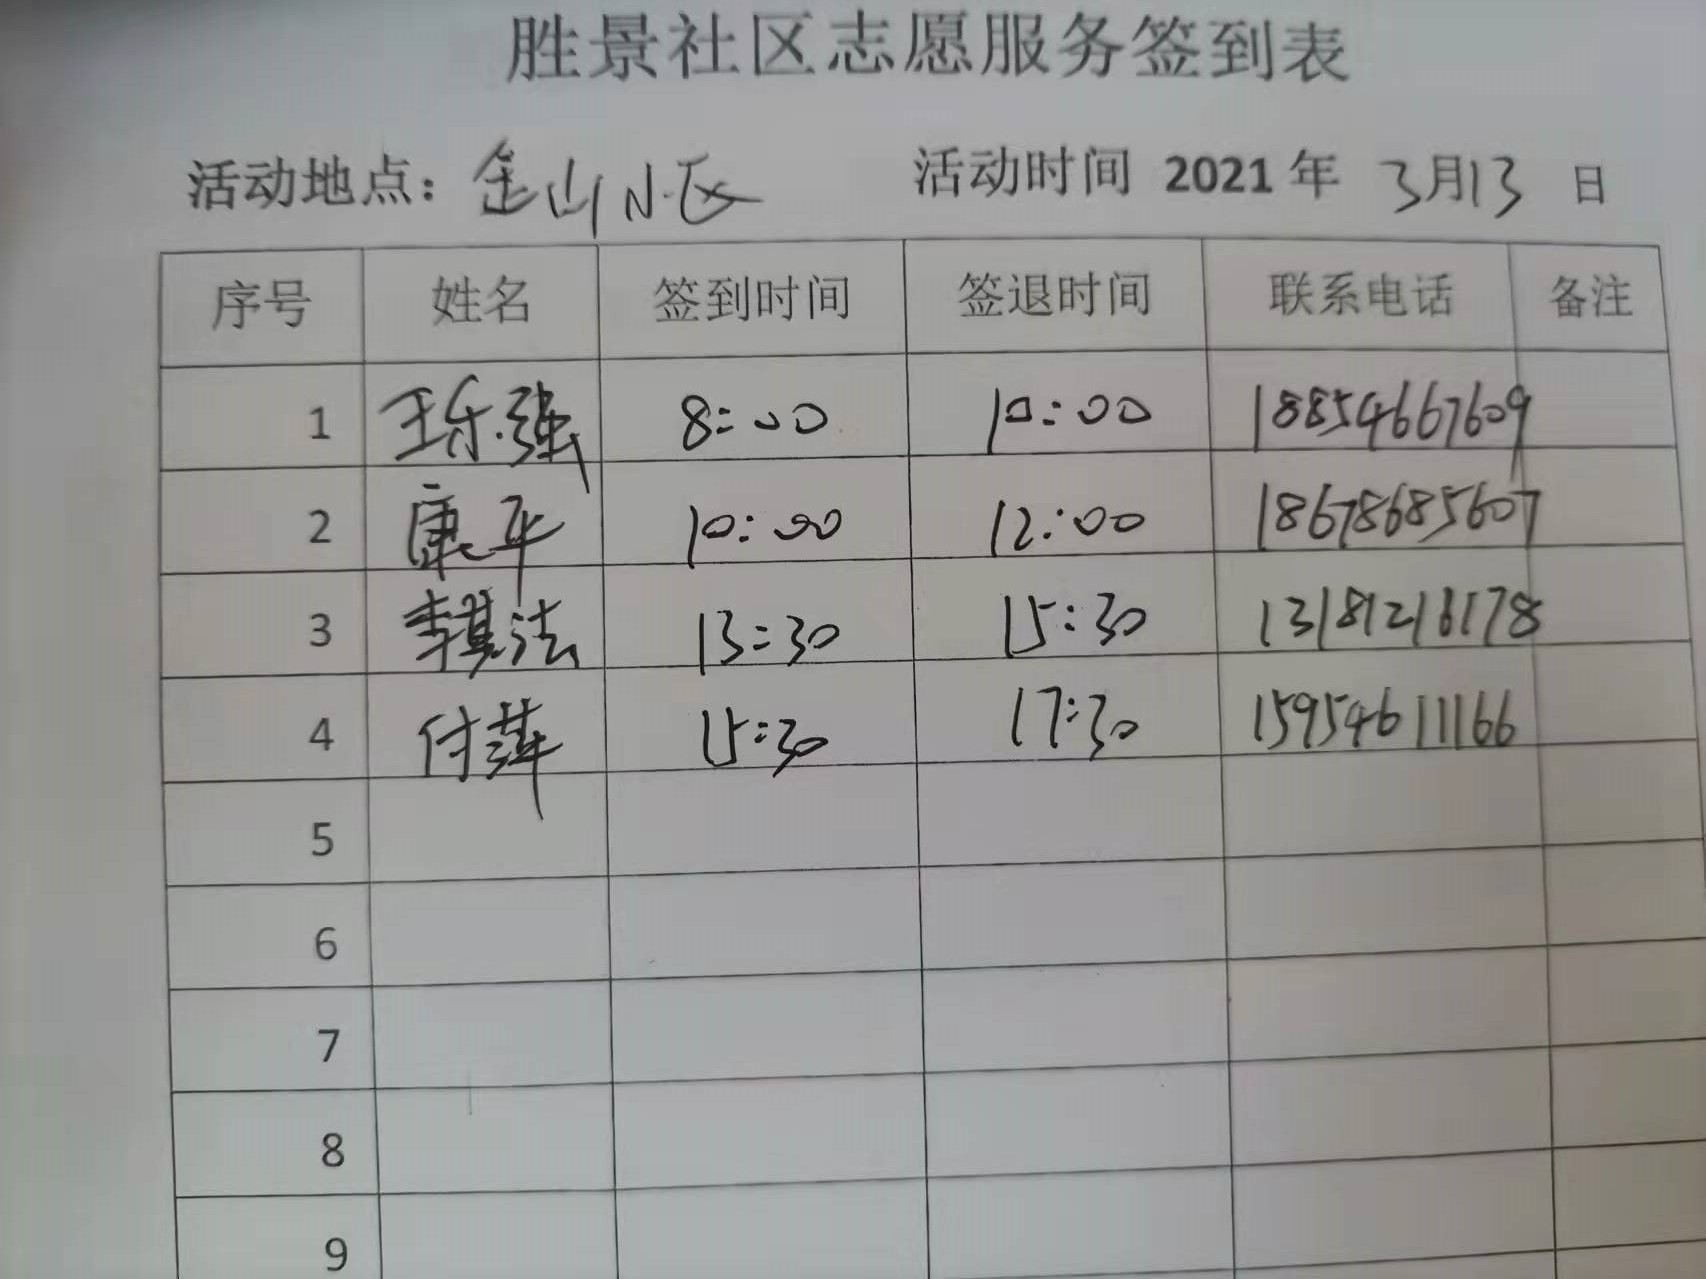 胜景社区志愿服务签到表
活动地点：金山小区 活动时间 2021 年 3月13 日
序号 姓名 签到时间 签退时间 联系电话 备注
1 王乐强 8:00 10:00 18854667609
2 康平 10:00 12:00 18678685607
3 李其法 13:30 15:30 13181216178
4 付萍 15:30 17:30 15954611166
5
6
7
8
9